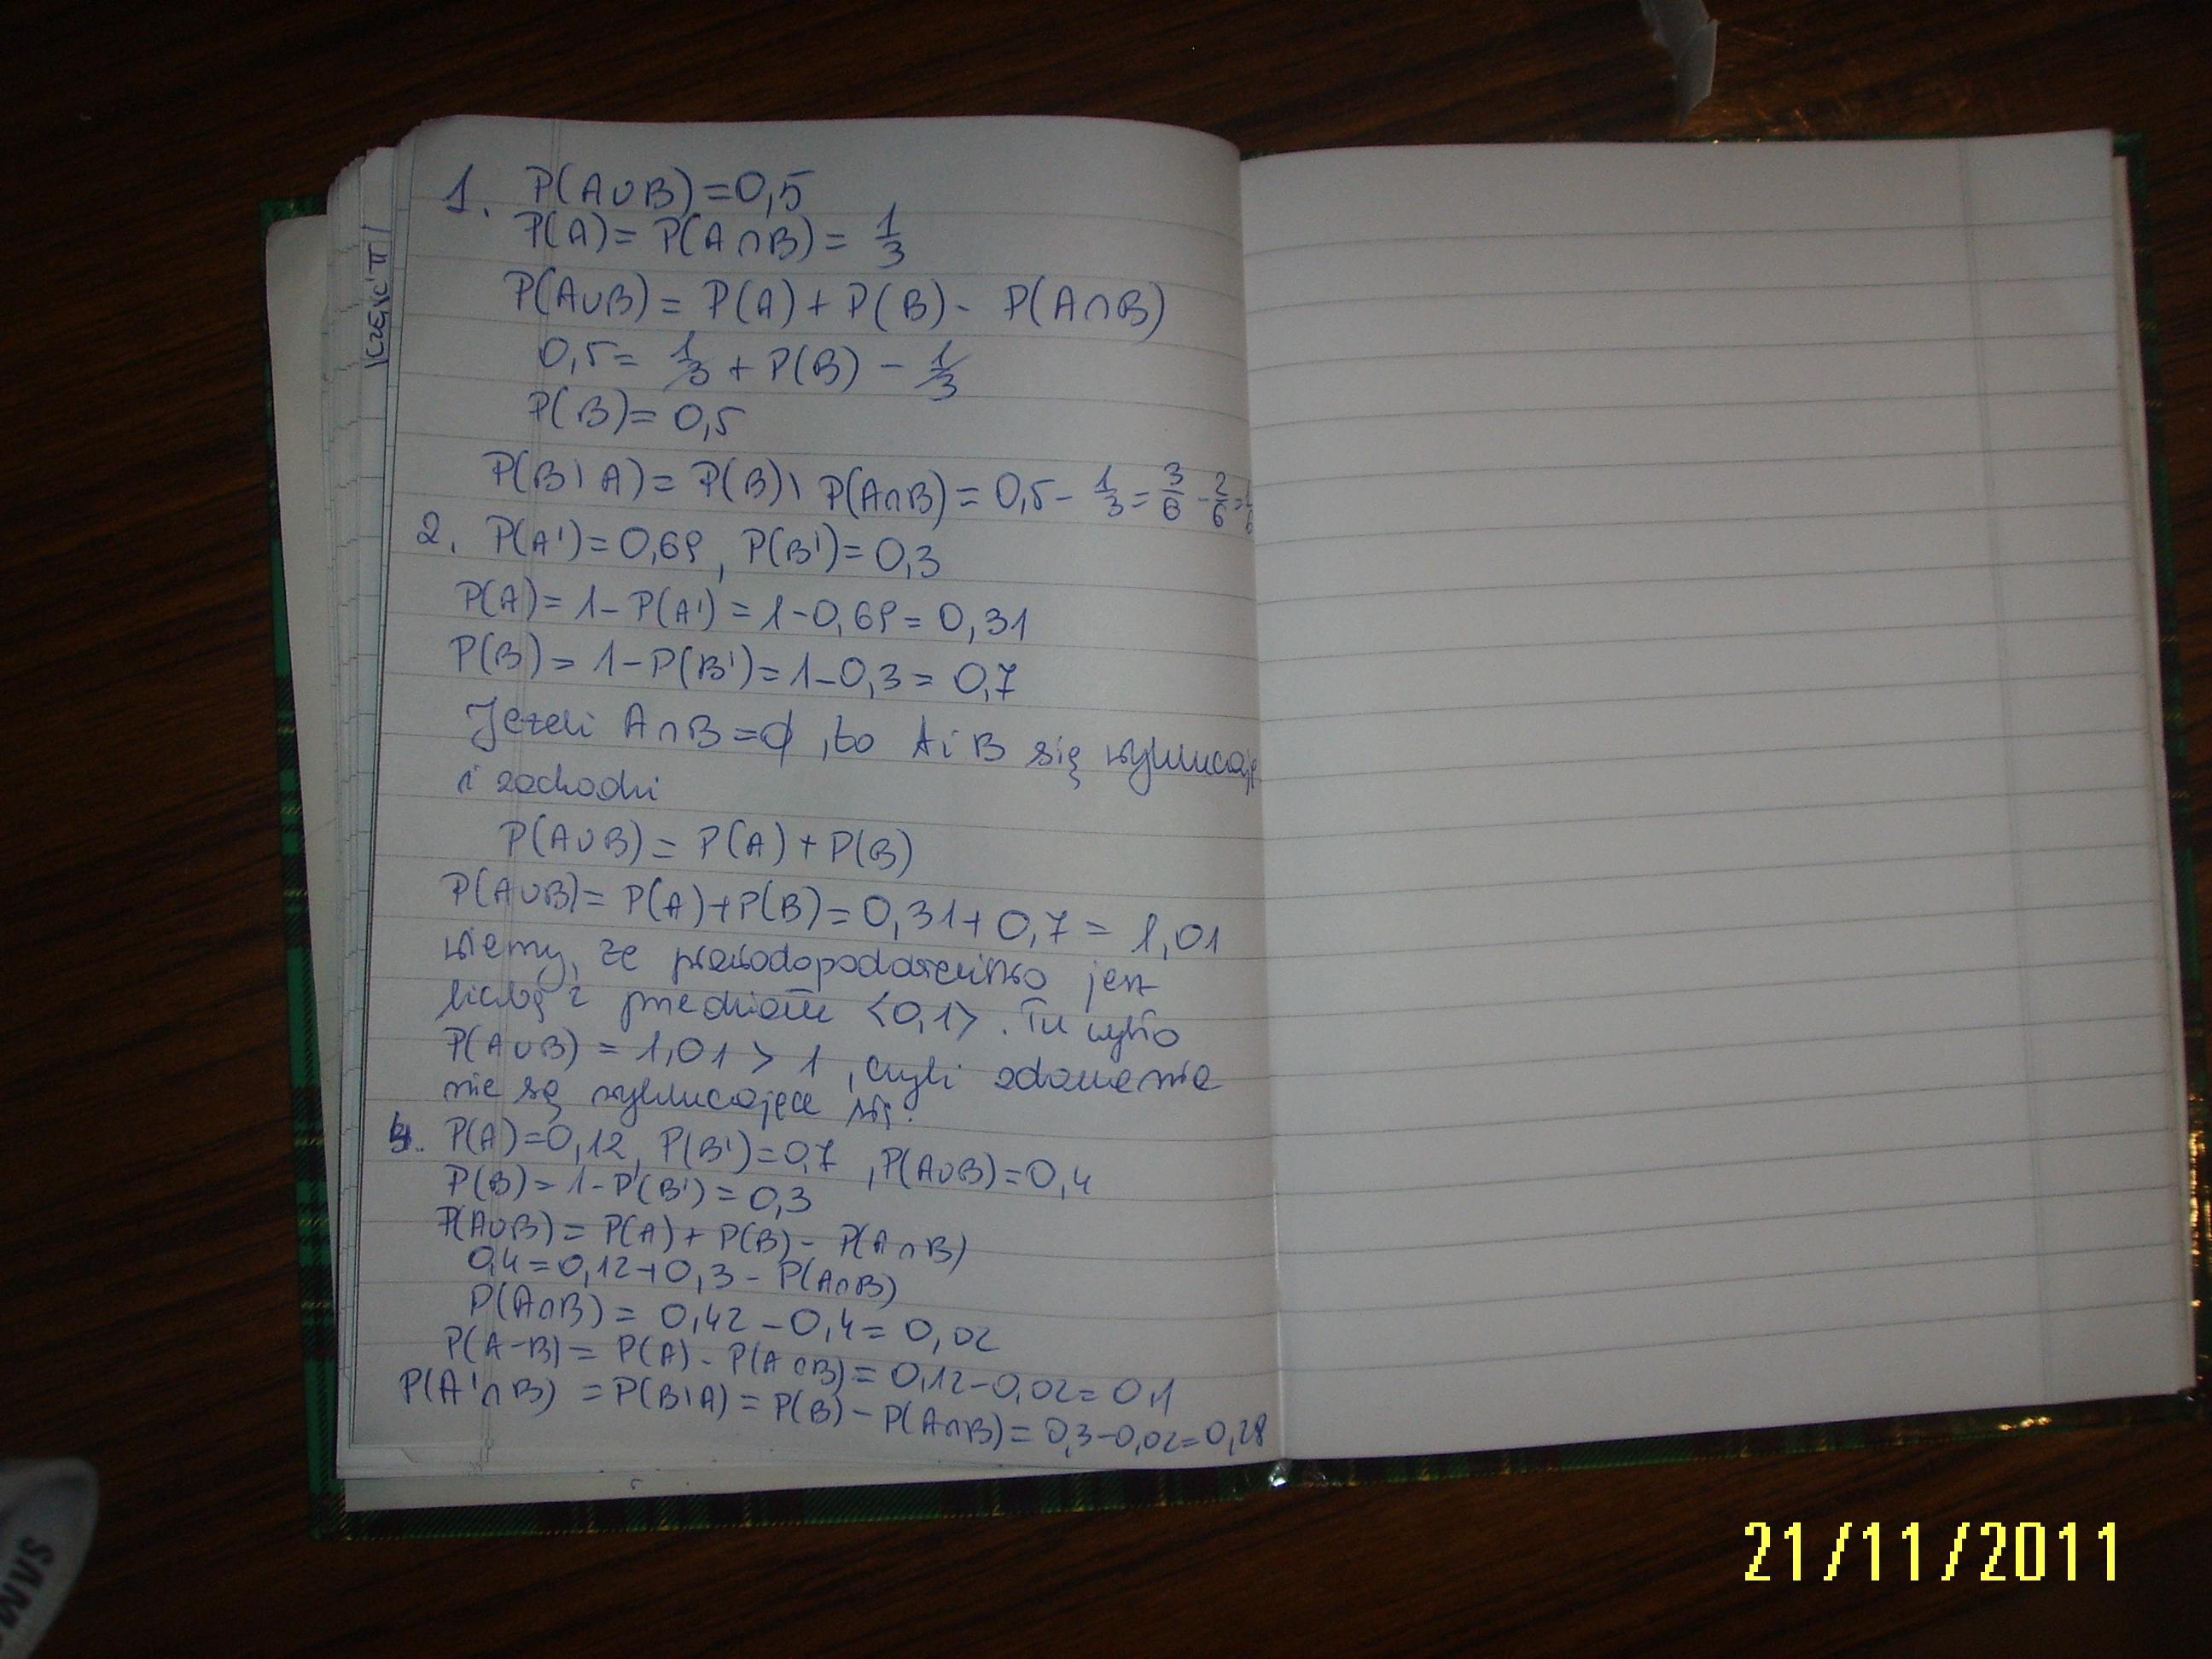 część II
1. P(A∪B)=0,5
P(A)= P(A∩B)= 1/3
P(A∪B)= P(A)+P(B)- P(A∩B)
0,5= 1/3 + P(B) - 1/3
P(B)= 0,5
P(B\A)= P(B)\ P(A∩B)= 0,5- 1/3= 3/6 - 2/6= 1/6
2. P(A')=0,69, P(B')=0,3
P(A)= 1- P(A')= 1-0,69= 0,31
P(B)= 1-P(B')=1-0,3= 0,7
Jeżeli A∩B=∅, to A i B się wykluczają
i zachodzi
P(A∪B)= P(A)+P(B)
P(A∪B)= P(A)+P(B)=0,31+0,7= 1,01
wiemy, że prawdopodobieństwo jest
liczbą z przedziału <0,1>. Tu wyszło
P(A∪B) = 1,01 > 1, czyli zdarzenia
nie są wykluczające się.
4. P(A)=0,12, P(B')=0,7, P(A∪B)=0,4
P(B)= 1-P(B')= 0,3
P(A∪B)= P(A)+P(B)- P(A∩B)
0,4=0,12+0,3- P(A∩B)
P(A∩B)= 0,42-0,4= 0,02
P(A-B)= P(A)- P(A∩B)= 0,12-0,02= 0,1
P(A'∩B) =P(B\A)= P(B)-P(A∩B)= 0,3-0,02=0,28
SAM
21/11/2011